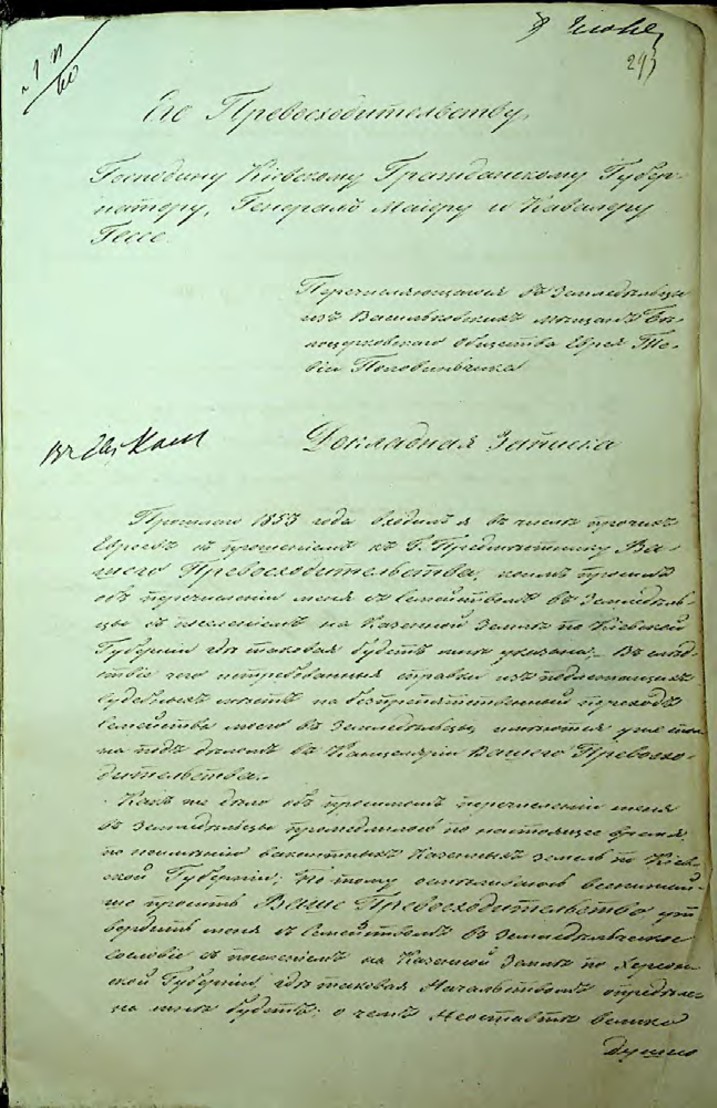 293
Его Превосходительству,
Господину Кіевскому Гражданскому Губер-
натору, Генералъ Маіору и Кавалеру
Гессе.
Перечисляющагося въ Земледѣльцы
изъ Васильковскихъ мѣщанъ Бѣ-
лоцерковскаго Общества Еврея Те-
віи
Докладная Записка
Прошлаго 1853 года входилъ я въ числѣ прочихъ
Евреевъ съ прошеніемъ къ Г. Предмѣстнику Ва-
шего Превосходительства, коимъ просилъ
объ перечисленіи меня съ Семействомъ въ Земледѣль-
цы съ поселеніемъ на Казенной Землѣ по Кіевской
Губерніи гдѣ таковая будетъ мнѣ указана. Въ слѣд-
ствіе чего истребованныя справки изъ подлежащихъ
судебныхъ мѣстъ на безпрепятственный переходъ
Семейства моего въ Земледѣльцы имѣются уже
на подъ дѣломъ въ Канцеляріи Вашего Превосхо-
дительства.
Какъ же дѣло объ просимомъ перечисленіи меня
въ Земледѣльцы по настоящее время,
по неимѣнію вакантныхъ Казенныхъ земель по Кіев-
ской Губерніи; По тому осмѣливаюсь всенижай-
ше просить Ваше Превосходительство ут-
вердить меня съ Семействомъ въ Земледѣльческое
сословіе съ поселеніемъ на Казенной Землѣ по Херсон-
ской Губерніи, гдѣ таковая Начальствомъ опредѣле-
на мнѣ будетъ; о чемъ Неоставьте велико
душно